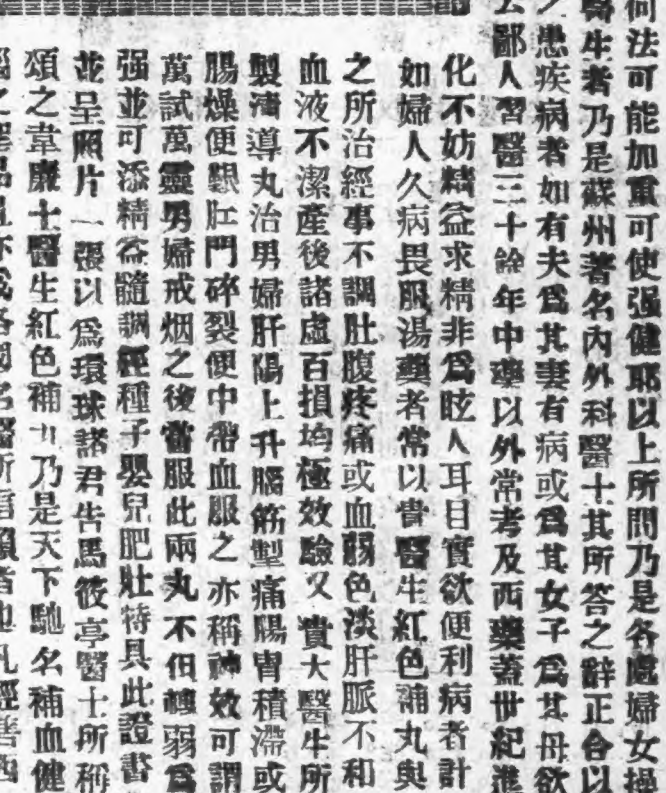 何法可能加重可使强健耶以上所問乃是各處婦女操
醫生者乃是蘇州著名內外科醫士其所答之辭正合以
之患疾病者如有夫爲其妻有病或爲其女子爲其母欲
去鄙人習醫三十餘年中藥以外常考及西藥蓋世紀進
化不妨精益求精非爲眩人耳目實欲便利病者計
如婦人久病畏服湯藥者常以貴醫生紅色補丸與
之所治經事不調肚腹疼痛或血弱色淡肝脈不和
血液不潔產後諸虛百損均極效驗又貴大醫生所
製清導丸治男婦肝陽上升腦筋掣痛腸胃積滯或
腸燥便艱肛門碎裂便中帶血服之亦稱神效可謂
萬試萬靈男婦戒烟之後嘗服此兩丸不但轉弱爲
强並可添精益髓調經種子嬰兒肥壯特具此證書
並呈照片一張以爲環球諸君告馬筱亭醫士所稱
頌之韋廉士醫生紅色補丸乃是天下馳名補血健